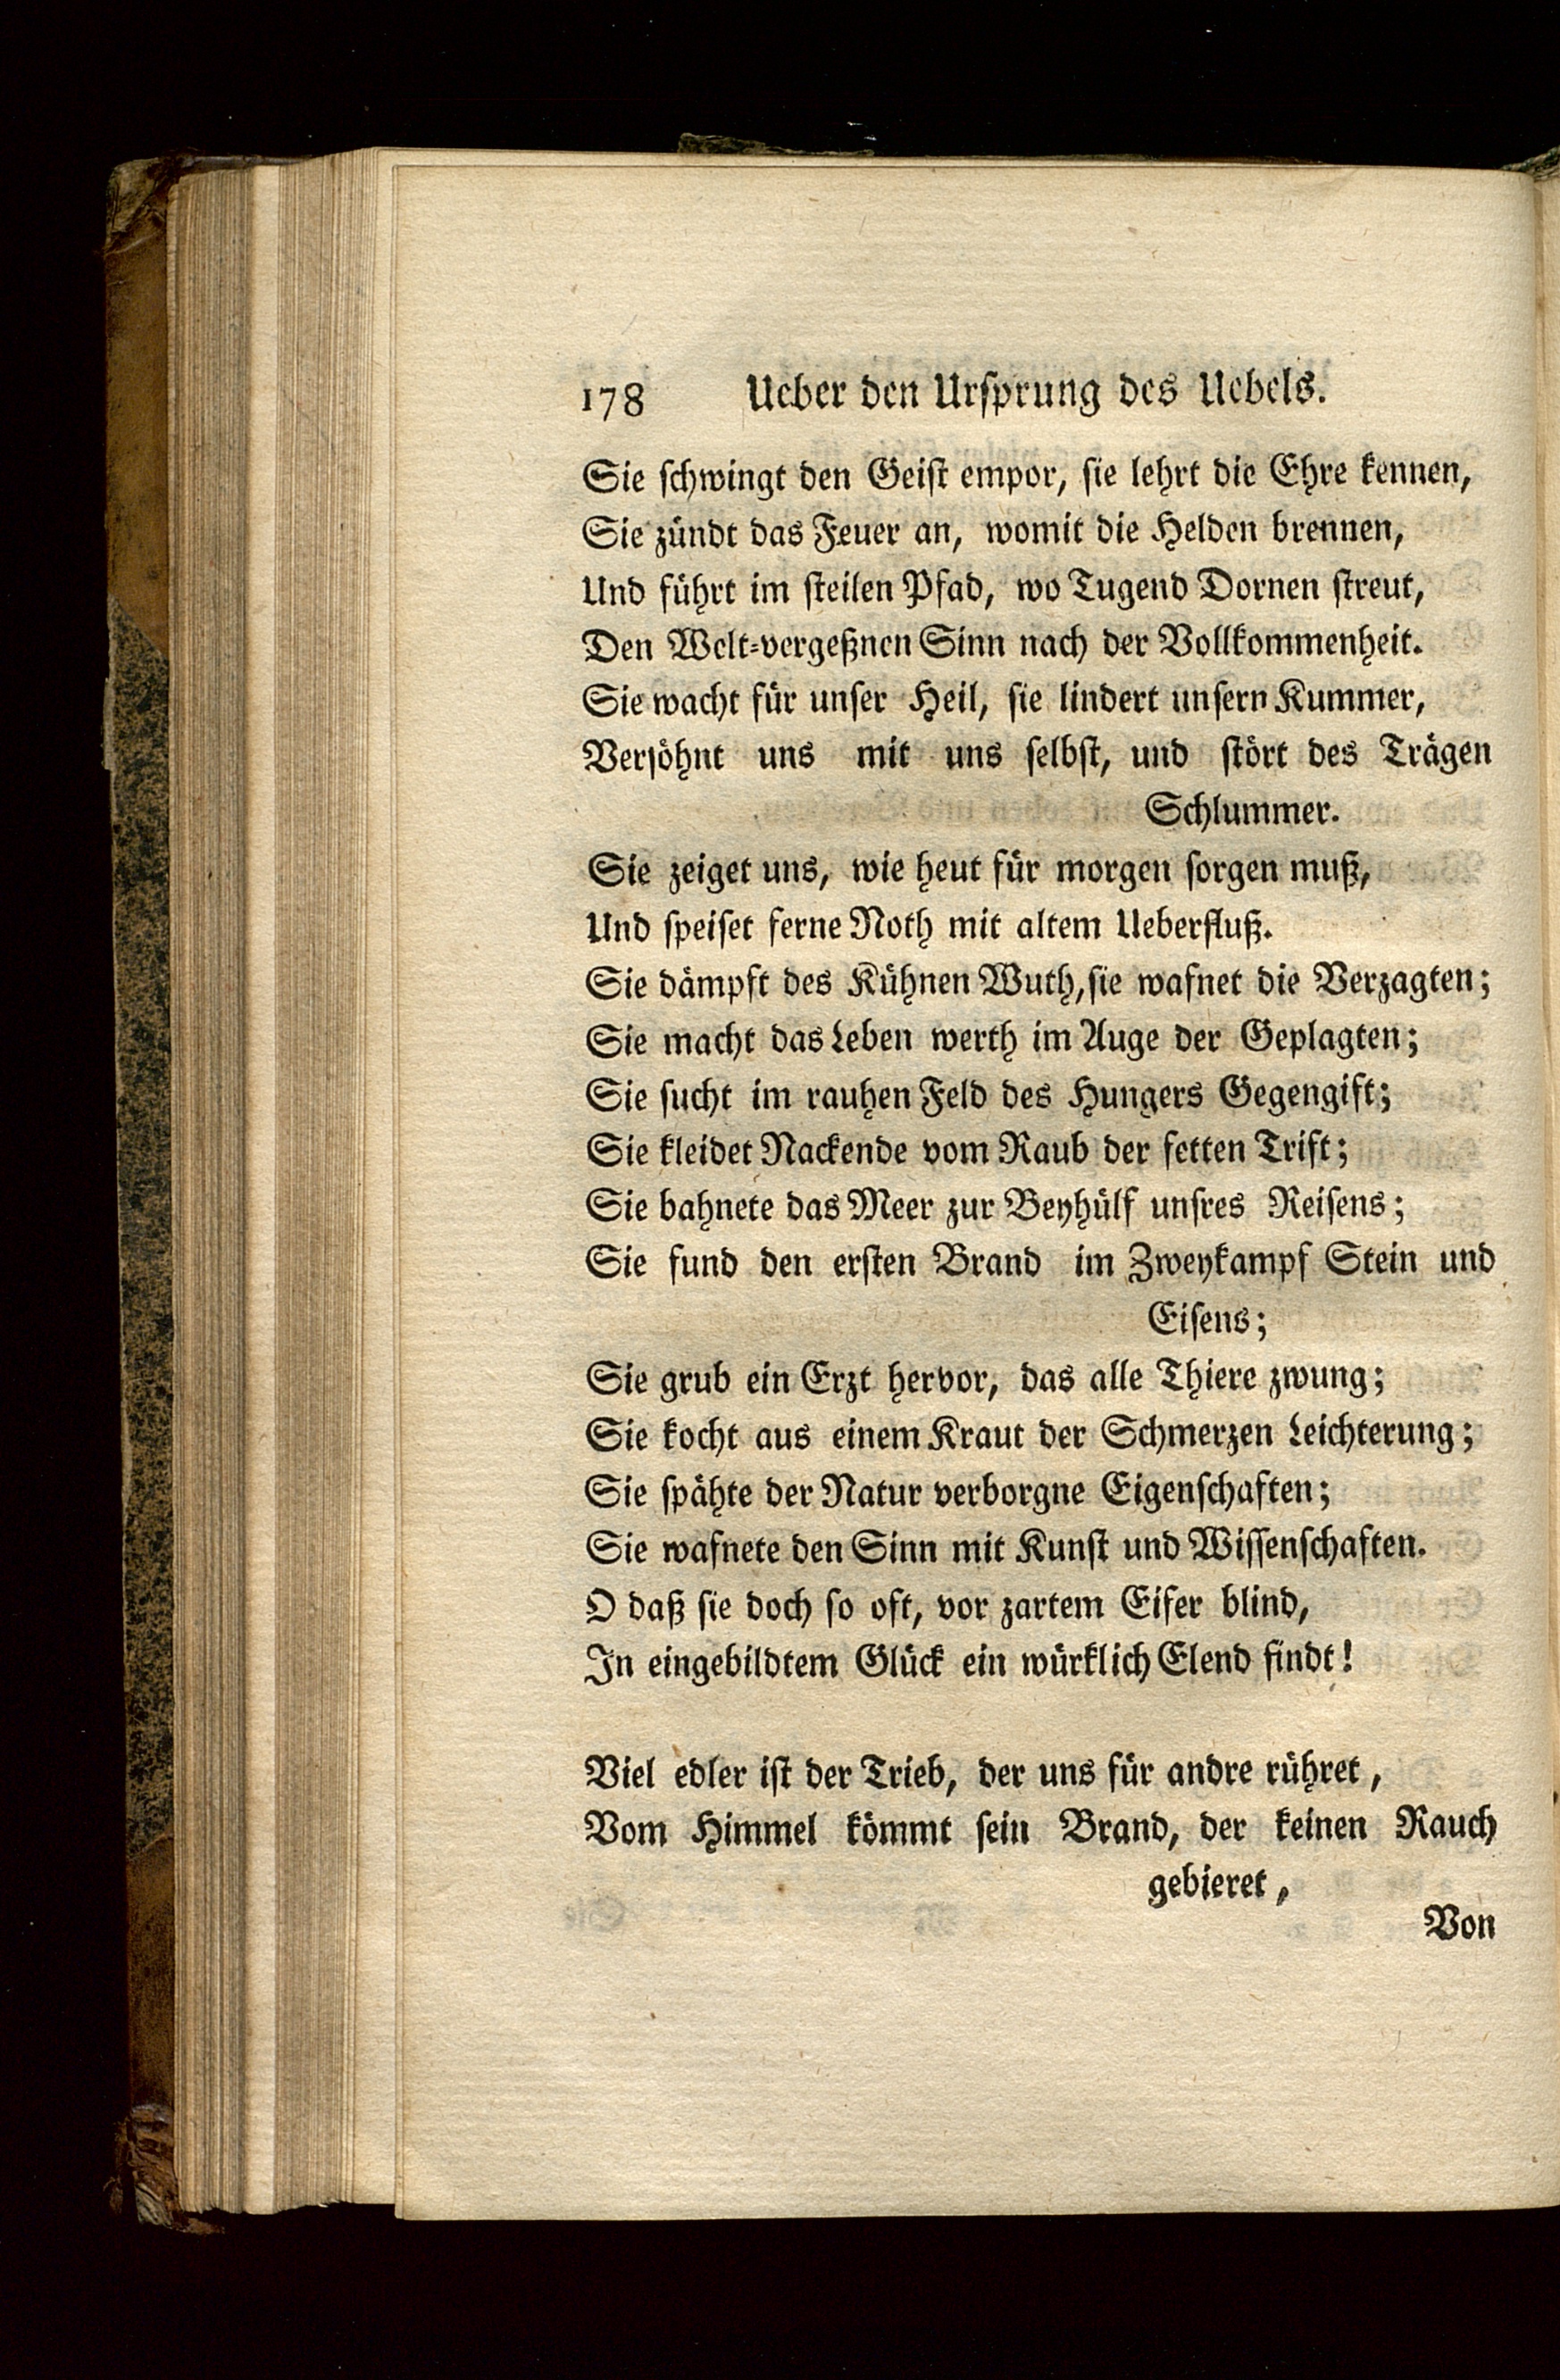 178 Ueber den Ursprung des Uebels.
Sie schwingt den Geist empor, sie lehrt die Ehre kennen,
Sie zündt das Feuer an, womit die Helden brennen,
Und führt im steilen Pfad, wo Tugend Dornen streut,
Den Welt-vergeßnen Sinn nach der Vollkommenheit.
Sie wacht für unser Heil, sie lindert unsern Kummer,
Versöhnt uns mit uns selbst, und stört des Trägen
Schlummer.
Sie zeiget uns, wie heut für morgen sorgen muß,
Und speiset ferne Noth mit altem Ueberfluß.
Sie dämpft des Kühnen Wuth, sie wafnet die Verzagten;
Sie macht das Leben werth im Auge der Geplagten;
Sie sucht im rauhen Feld des Hungers Gegengift;
Sie kleidet Nackende vom Raub der fetten Trift;
Sie bahnete das Meer zur Beyhülf unsres Reisens;
Sie fund den ersten Brand im Zweykampf Stein und
Eisens;
Sie grub ein Erzt hervor, das alle Thiere zwung;
Sie kocht aus einem Kraut der Schmerzen Leichterung;
Sie spähte der Natur verborgne Eigenschaften;
Sie wafnete den Sinn mit Kunst und Wissenschaften.
O daß sie doch so oft, vor zartem Eifer blind,
In eingebildtem Glück ein würklich Elend findt!
Viel edler ist der Trieb, der uns für andre rühret,
Vom Himmel kömmt sein Brand, der keinen Rauch
gebieret,
Von